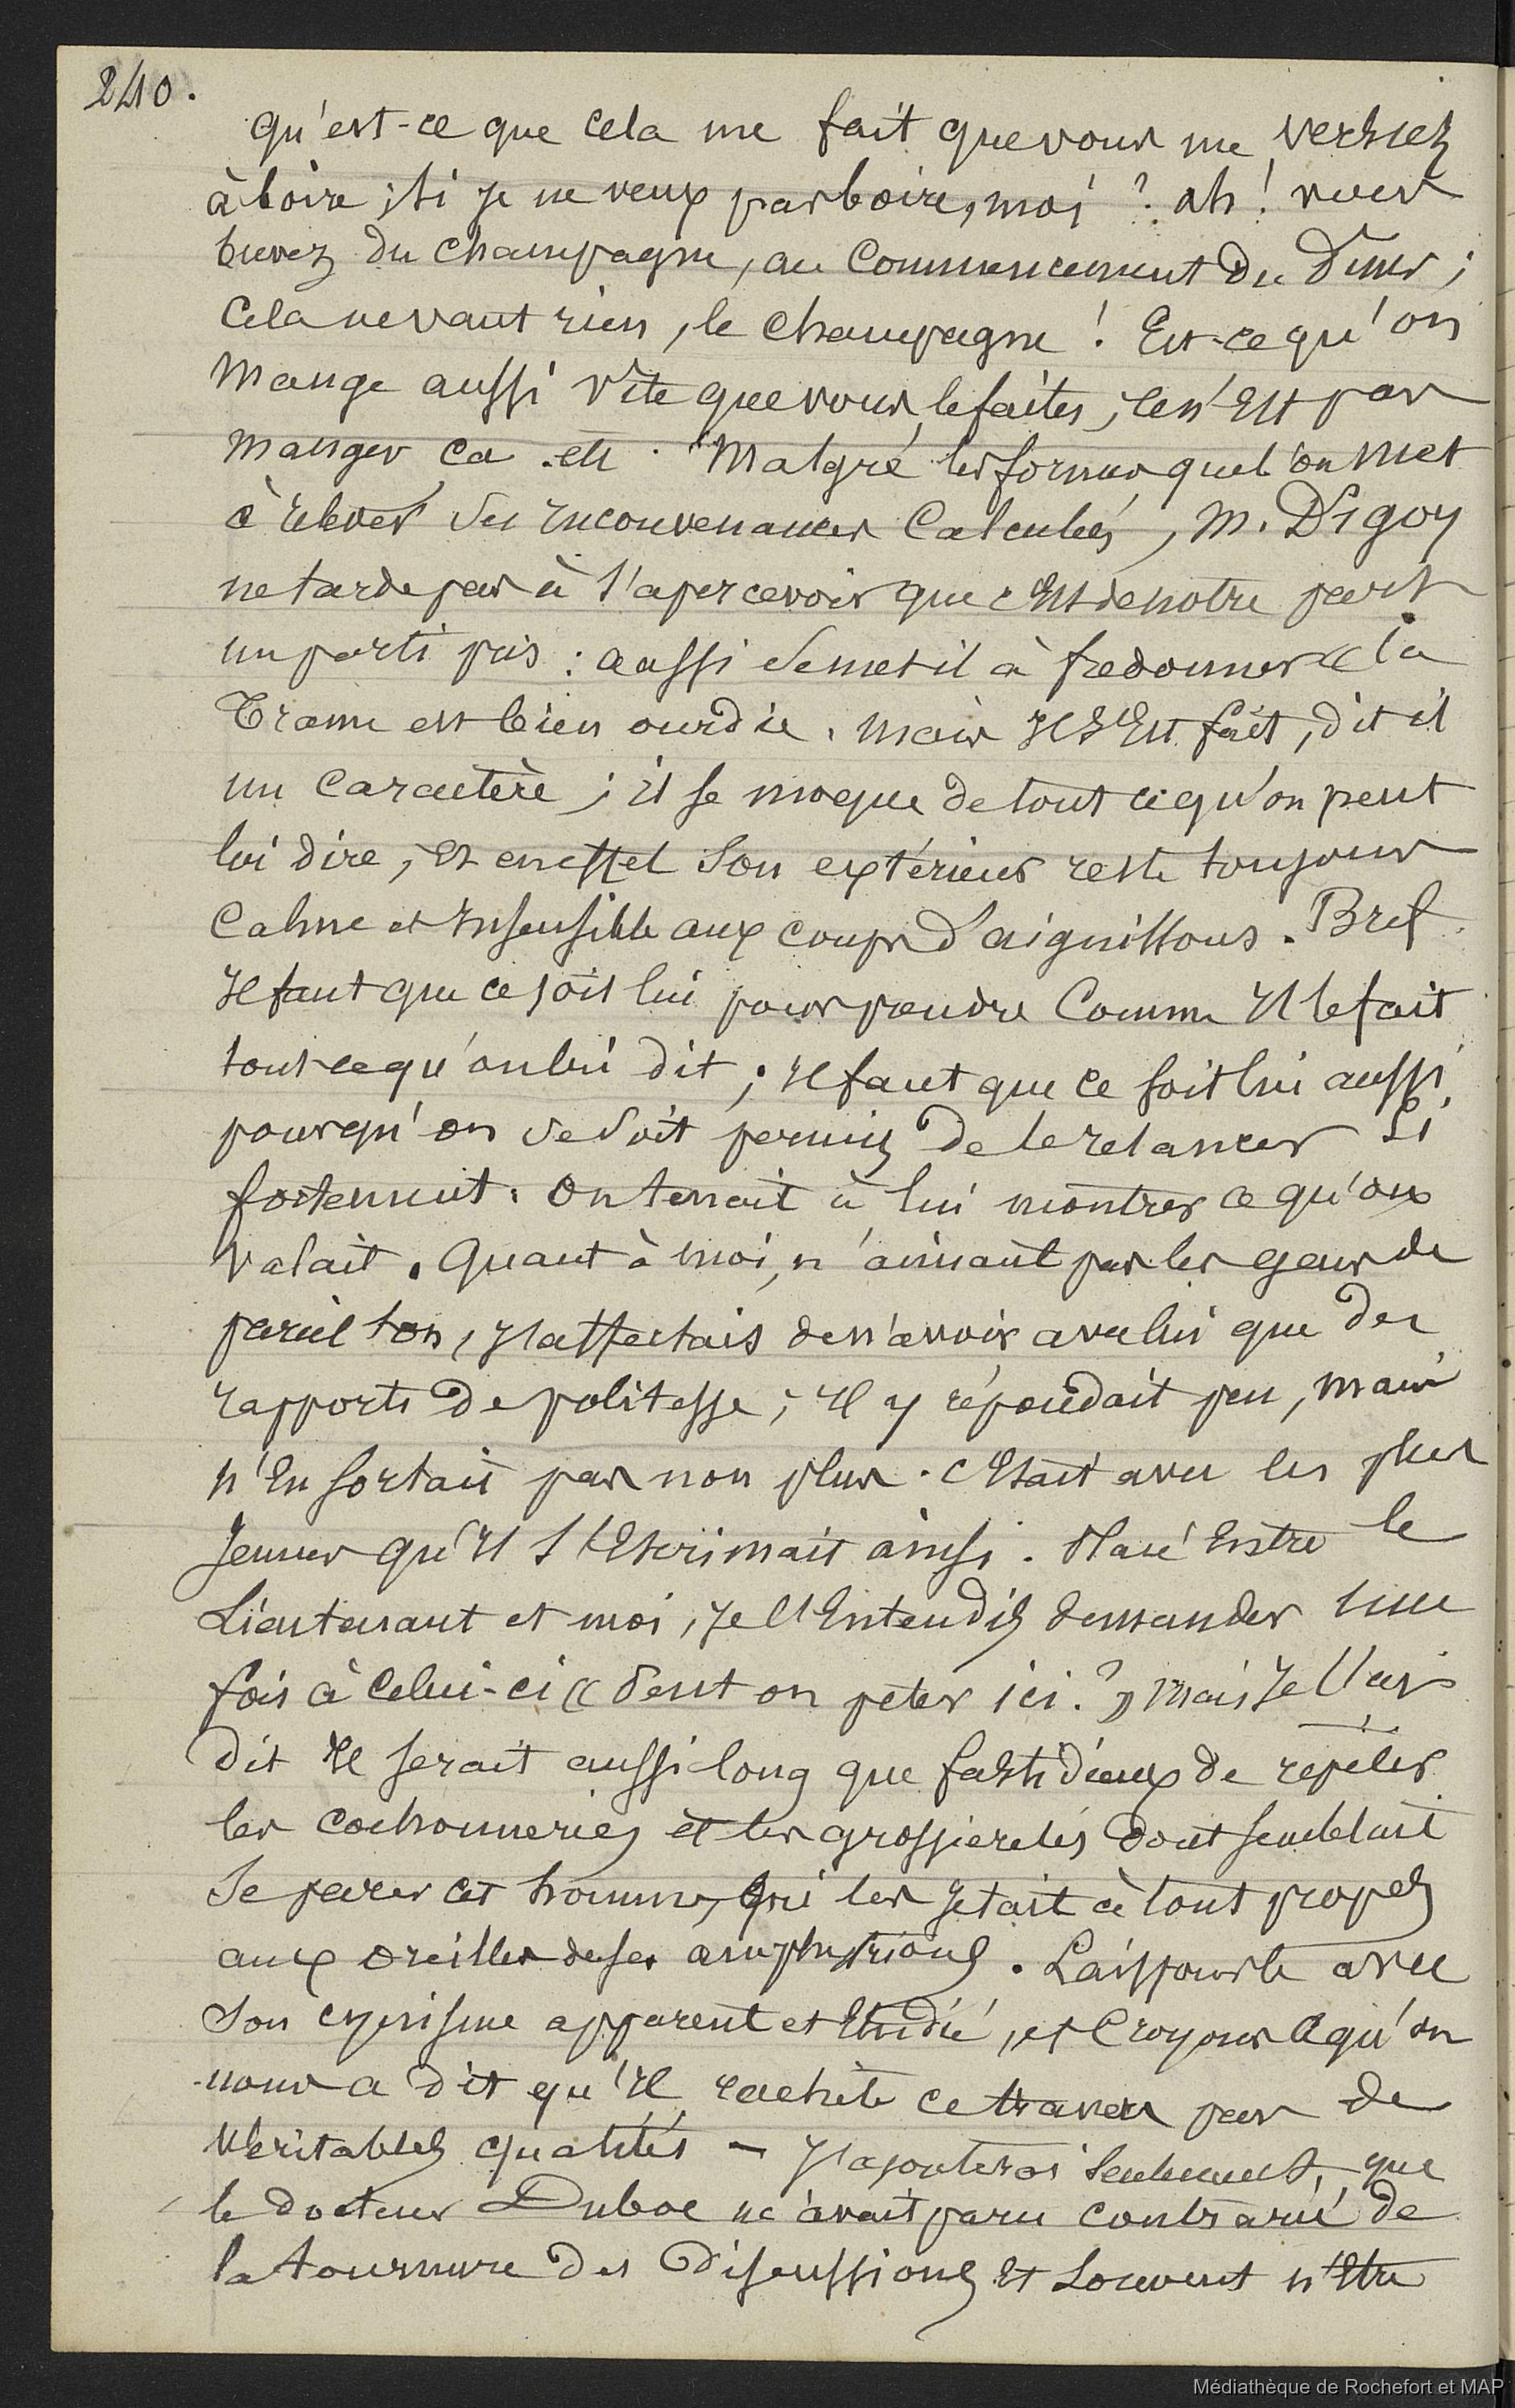 240.
qu'est-ce que cela me fait que vous me versiez
à boire ; si je ne veux pas boire, moi ? ah ! vous
buvez du Champagne, au Commencement du Diner ;
Cela ne vaut rien, le Champagne ! Est-ce qu'on
Mange aussi vite que vous le faites, ce n'Est pas
manger ca. etc. Malgré les formes que l'on met
à relever ses Inconvenances Calculées, M. Digoy
ne tarde pas à s'apercevoir que c'Est de notre part
un parti pris : aussi se met il à fredonner « la
Trame est bien ourdie. Mais Il s'Est fait, dit il
un Caractère ; il se moque de tout ce qu'on peut
lui dire, Et en effet Son extérieur reste toujours
Calme et Insensible aux coups d'aiguillons. Bref
Il faut que ce soit lui pour prendre Comme Il le fait
tout ce qu'on lui dit ; Il faut que ce soit lui aussi
pour qu'on se soit permis de le relancer Si
fortement. On tenait à lui montrer ce qu'on
valait. Quant à moi, n'aimant pas les gens de
pareil ton, J'affectais de n'avoir avec lui que des
rapports de politesse ; Il y répondait peu, mais
n'En sortait pas non plus. C'Etait avec les plus
Jeunes qu'Il s'Escrimait ainsi. Placé Entre le
Lieutenant et moi, Je l'Entendis demander une
fois à Celui-ci « Peut on peter ici ? » Mais Je l'ai
dit Il serait aussi long que fastidieux de repéter
les cochonneries et les grossieretés dont semblait
Se parer cet homme, Qui les Jetait à tout propos
aux oreilles de ses amphytrions. Laissons le avec
Son cynisme apparent et Etudié, et Croyons ce qu'on
nous a dit qu'Il rachète ce travers par de
Veritables qualités — J'ajouterai Seulement, que
le docteur Duboc m'avait paru contrarié de
la tournure des Discussions Et Souvent n'Etre